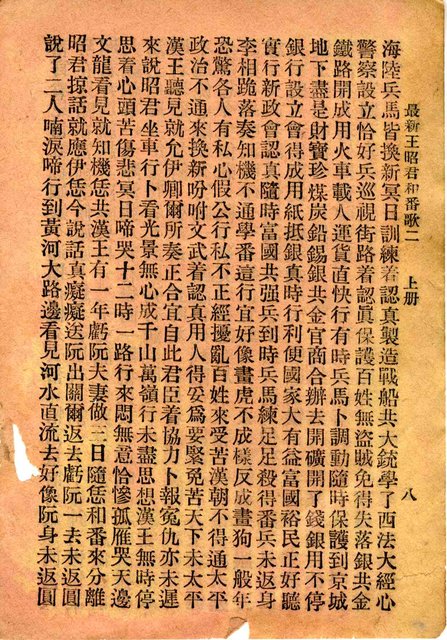 最新王昭君和番歌二　上册　八
海陸兵馬皆換新冥日訓練着認真製造戰船共大銃學了西法大經心
警察設立恰好兵巡視街路着認眞保護百姓無盜賊免得失落銀共金
鐵路開成用火車載人運貨直快行有時兵馬卜調動隨時保護到京城
地下盡是財寶珍煤炭鉛錫銀共金官商合辦去開礦開了錢銀用不停
銀行設立會得成用紙抵銀真時行利便國家大有益富國裕民正好聽
實行新政會認真隨時富國共强兵到時兵馬練足足殺得番兵未返身
李相跪落奏知機不通學番這行宜好像畫虎不成樣反成畫狗一般年
恐驚各人有私心假公行私不正經擾亂百姓來受苦漢朝不得通太平
政治不通來換新吩咐文武着認真用人得妥爲要緊免苦天下未太平
漢王聽見就允伊卿爾所奏正合宜自此君臣着協力卜報冤仇亦未遲
來說昭君坐車行卜看光景無心成千山萬嶺行未盡思想漢王無時停
思着心頭苦傷悲冥日啼哭十二時一路行來悶無意恰慘孤雁哭天邊
文龍看見就知機恁共漢王有一年虧阮夫妻做三日隨恁和番來分離
昭君掠話就應伊恁今說話真癡癡送阮出關爾返去虧阮一去未返圓
說了二人喃淚啼行到黃河大路邊看見河水直流去好像阮身未返圓